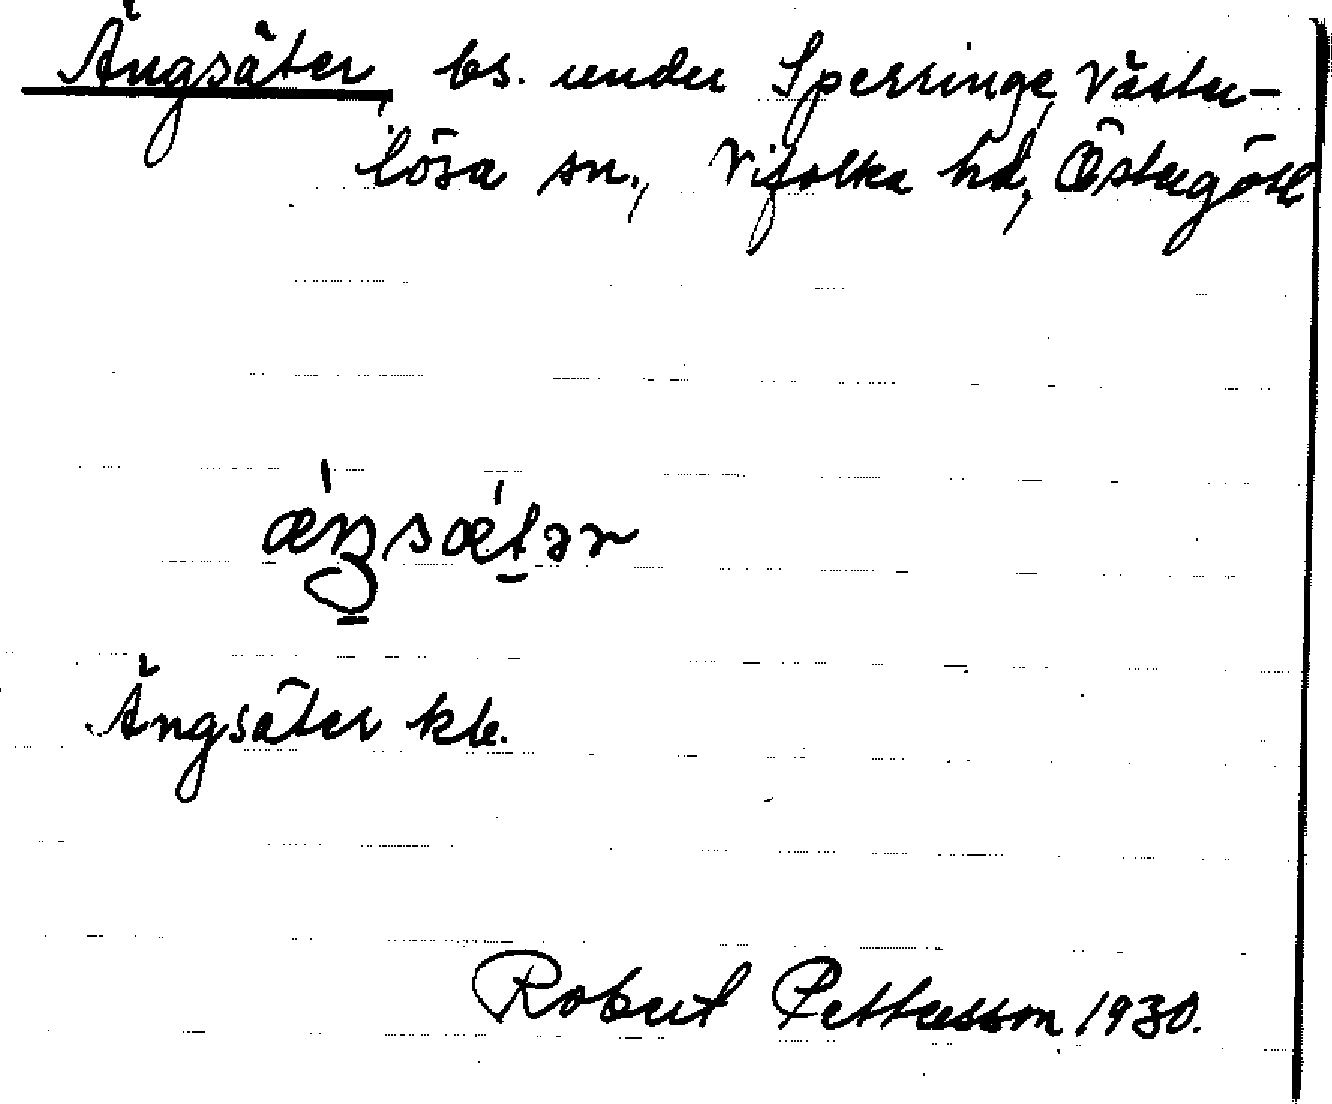 Ängsäter, bs. under Sperringe, Väster-
lösa sn., Vifolka hd, Östergötl
æ̀ŋsæ̀tər
Ängsäter kb.
Robert Pettersson 1930.